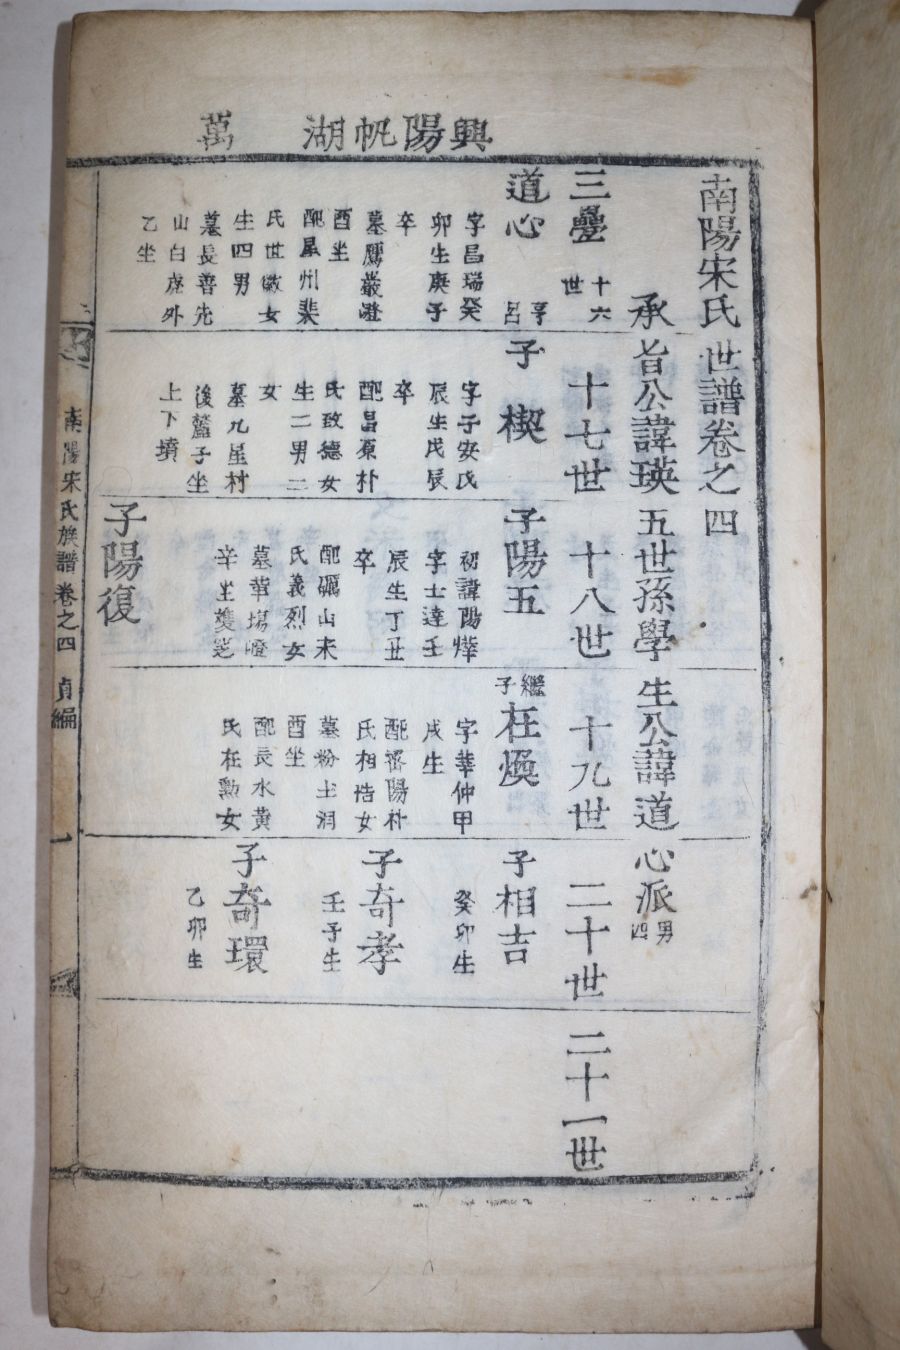 興陽帆湖
萬
南陽宋氏世譜卷之四
承旨公諱瑛五世孫學生公諱道心派
男四
三疊
十六世
十七世
十八世
十九世
二十世
二十一世
道心
享呂
字昌瑞癸
卯生庚子
卒
墓鷹巖嶝
酉坐
配星州裴
氏世徽女
生四男
墓長善先
山白虎外
乙坐
子楔
字子安戊
辰生戊辰
卒
配昌原朴
氏致德女
生二男二
女
墓九星村
後麓子坐
上下墳
子陽五
初諱陽燁
字士達壬
辰生丁丑
卒
配礪山宋
氏義烈女
墓華塲嶝
辛坐雙窆
繼子
在煥
字華仲甲
戌生
配密陽朴
氏相浩女
墓粉土洞
酉坐
配長水黃
氏在勳女
子相吉
癸卯生
子奇孝
壬子生
子奇環
乙卯生
子陽復
南陽宋氏族譜卷之四
貞編
一